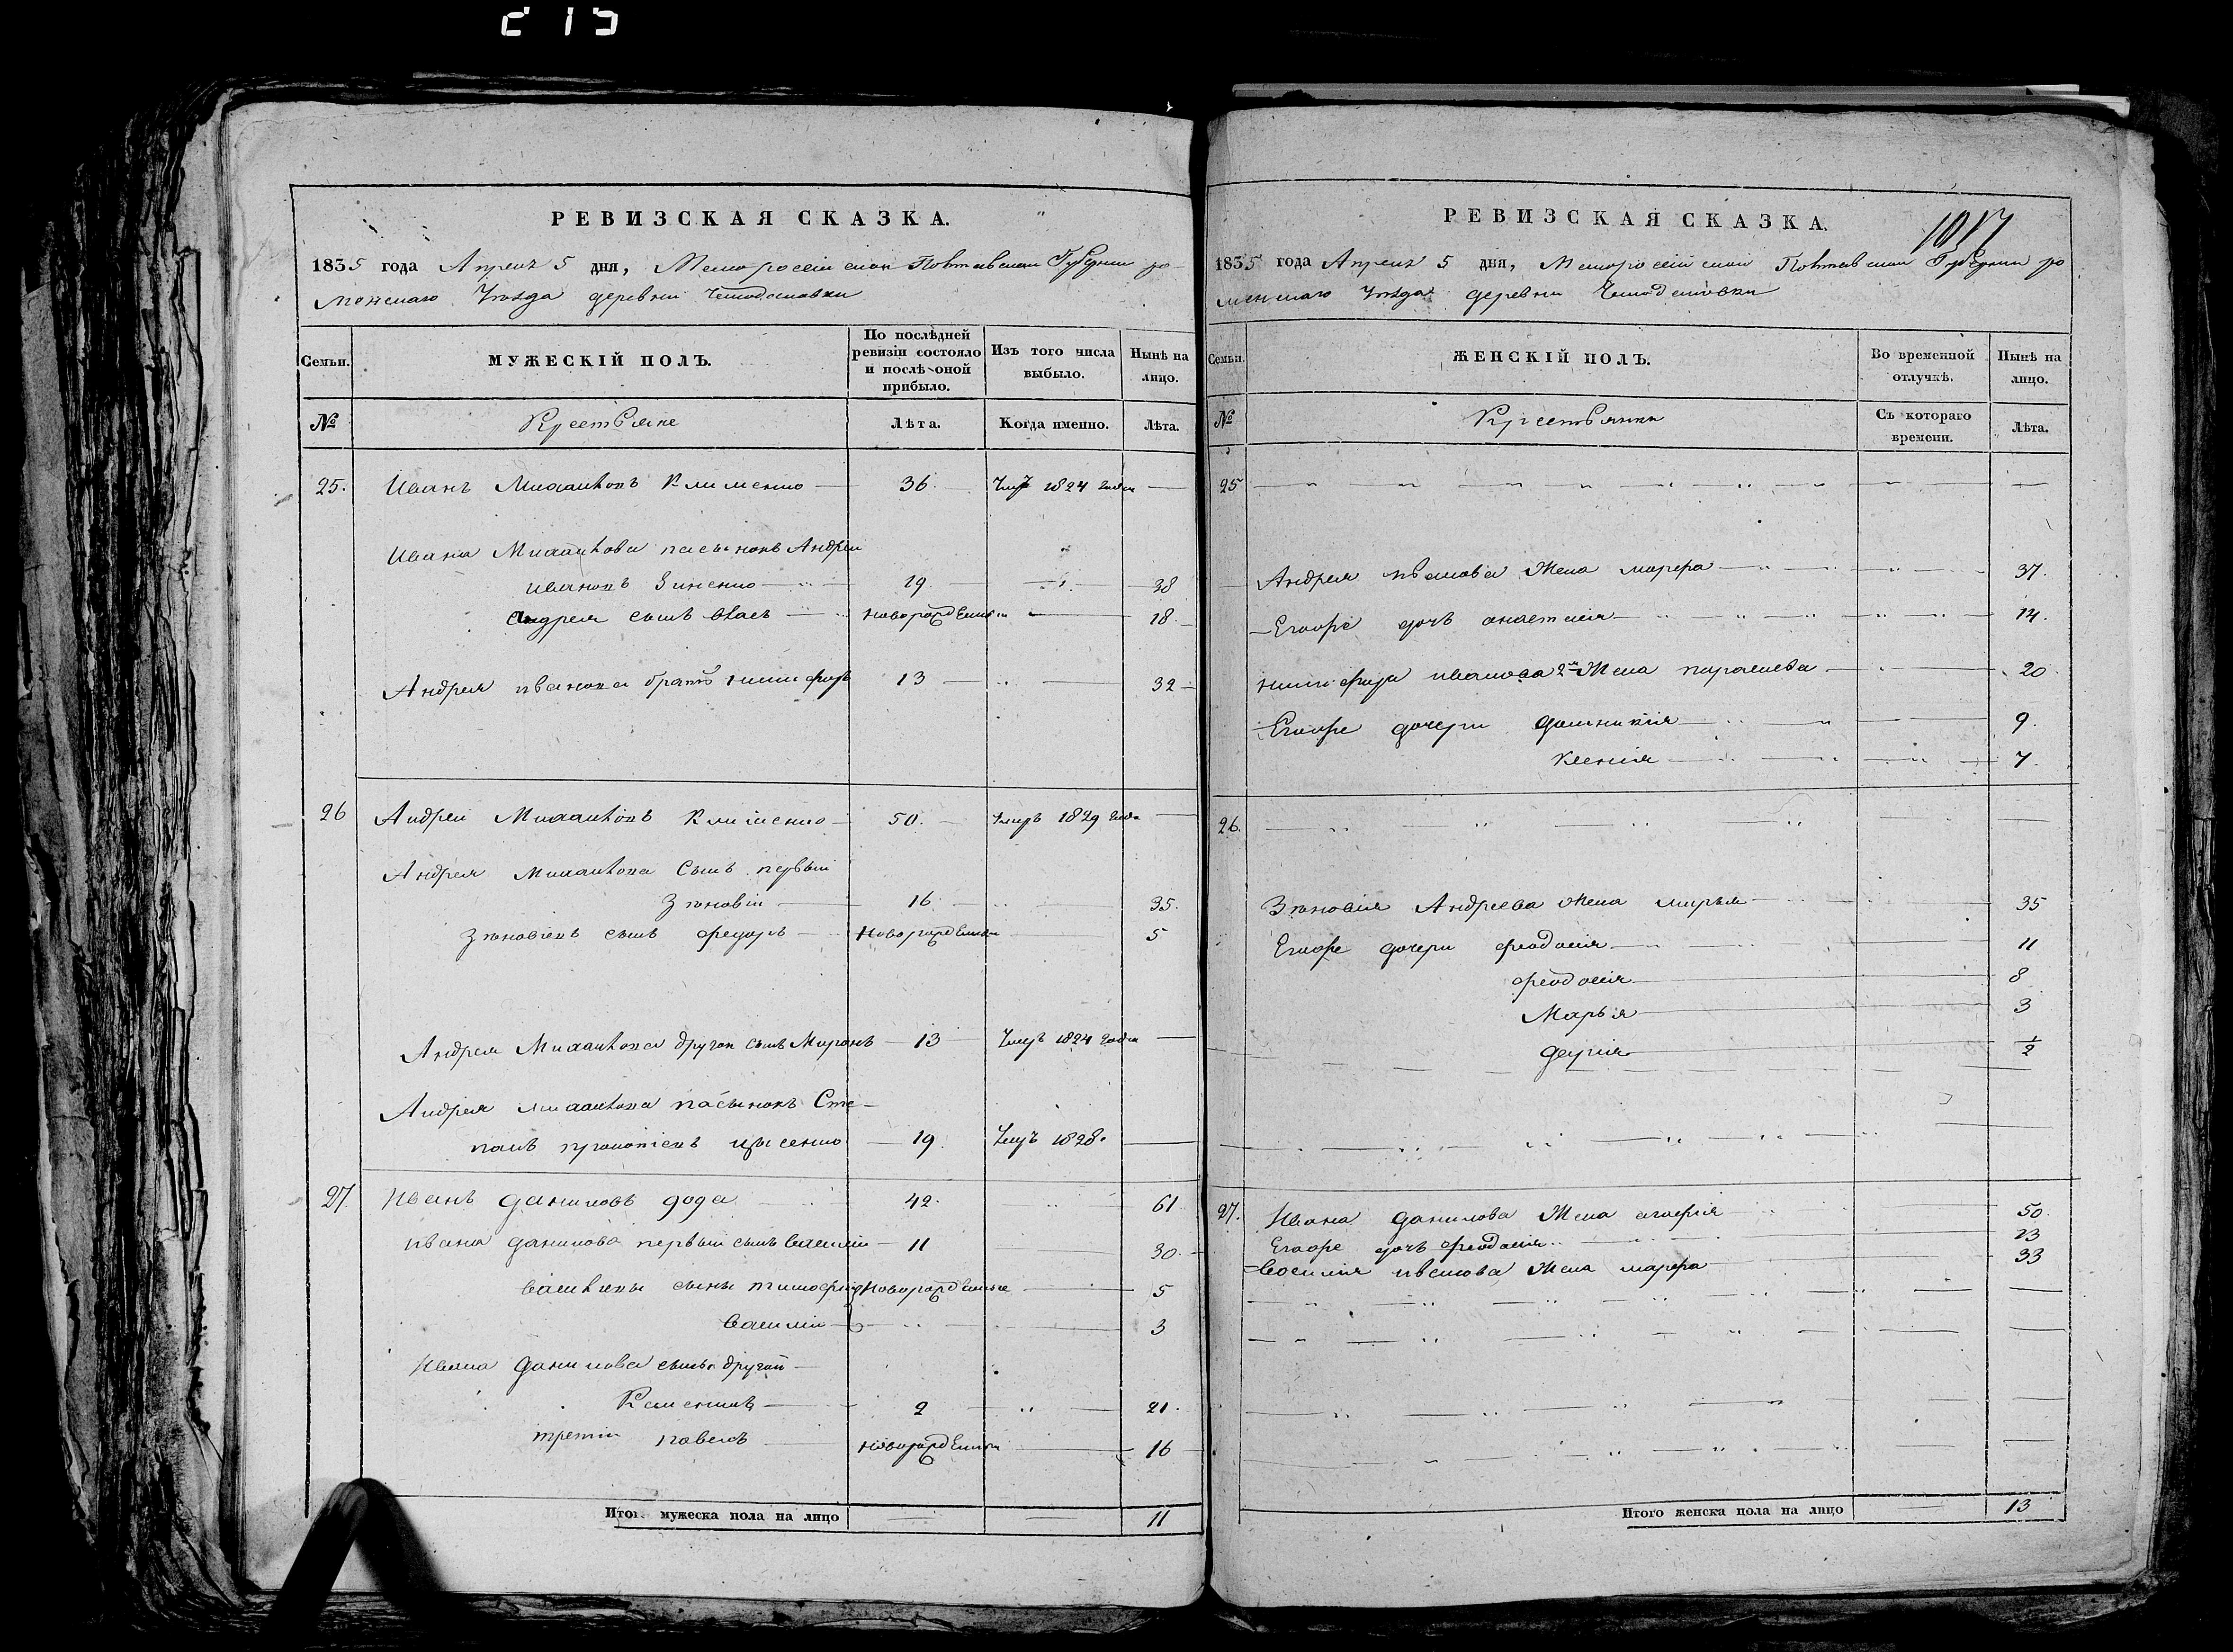 215
РЕВИЗСКАЯ СКАЗКА.
1835 года Апреля 5 дня, Малоросейской Полтавской Губернии ро-
менскаго Уезда деревни
Семьи.
МУЖЕСКІЙ ПОЛЪ.
По послѣдней ревизіи состояло и послѣ оной прибыло.
Изъ того числа выбыло.
Нынѣ на лицо.
№
Крестьяне
Лѣта.
Когда именно.
Лѣта.
25. Иванъ Михайловъ Клименко 36. Умр 1824 года
Ивана Михайлова пасынокъ Андрей
Ивановъ Зиненко 19 38
Андрея сынъ Влас новорожденный 18.
Андрея Иванова братъ Никифоръ 13 32
26 Андрей Михайловъ Клименко 50. умеръ 1829 года
Андрея Михайлова Сынъ первый
Зѣновій 16 35.
Зѣновіевъ сынъ Федоръ Новорожденный 5
Андрея Михайлова другой сынъ Миронъ 13 Умеръ 1824 года
Андрея Михайлова пасынокъ Сте-
панъ Прокопіевъ 19. Умръ 1828.
27. Иванъ Даниловъ 42. 61
Ивана Данилова первый сынъ Василій 11 30.
Васильевы сыны Тимофей Новорожденные 5
Василій 3
Ивана Данилова сынъ другой
Клементій 2 21.
третій Павелъ новорожденный 16
Итого мужеска пола на лицо 11
РЕВИЗСКАЯ СКАЗКА.
1835 года Апреля 5 дня, Малоросейской Полтавской Губернии ро
менскаго Уезда деревни
Семьи.
ЖЕНСКІЙ ПОЛЪ.
Во временной отлучкѣ.
Нынѣ на лицо.
№
Крестьянки
Съ котораго времени.
Лѣта.
25
Андрея Иванова Жена Марфа 37.
Егоже дочь Анастасія 14.
Никифора Иванова 2я Жена Параскева 20
Егоже дочери Домникія 9.
Ксенія 7.
26.
Зѣновія Андреева Жена Марья 35
Егоже дочери Феодосія 11
Феодосія 8
Марья 3
Дарія 1/2
27. Ивана Данилова Жена Агафія 50.
Егоже дочь Феодосія 23
Василія Иванова Жена Марфа 33
Итого женска пола на лицо 13